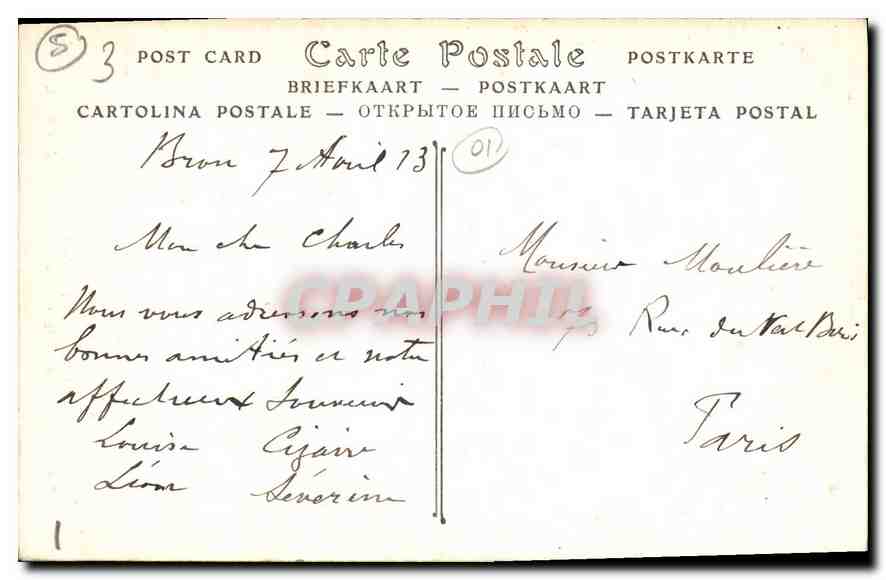 5
3
POST CARD Carte Postale POSTKARTE
BRIEFKAART — POSTKAART
CARTOLINA POSTALE — ОТКРЫТОЕ ПИСЬМО — TARJETA POSTAL
Bron 7 Avril 13
01
Mon cher Charles
Nous vous adressons nos
bonnes amitiés et notre
affectueux Souvenir
Louise
Léon Séverine
Monsieur Moulière
Rue du Vert Bois
Paris
CPAPHIL
1